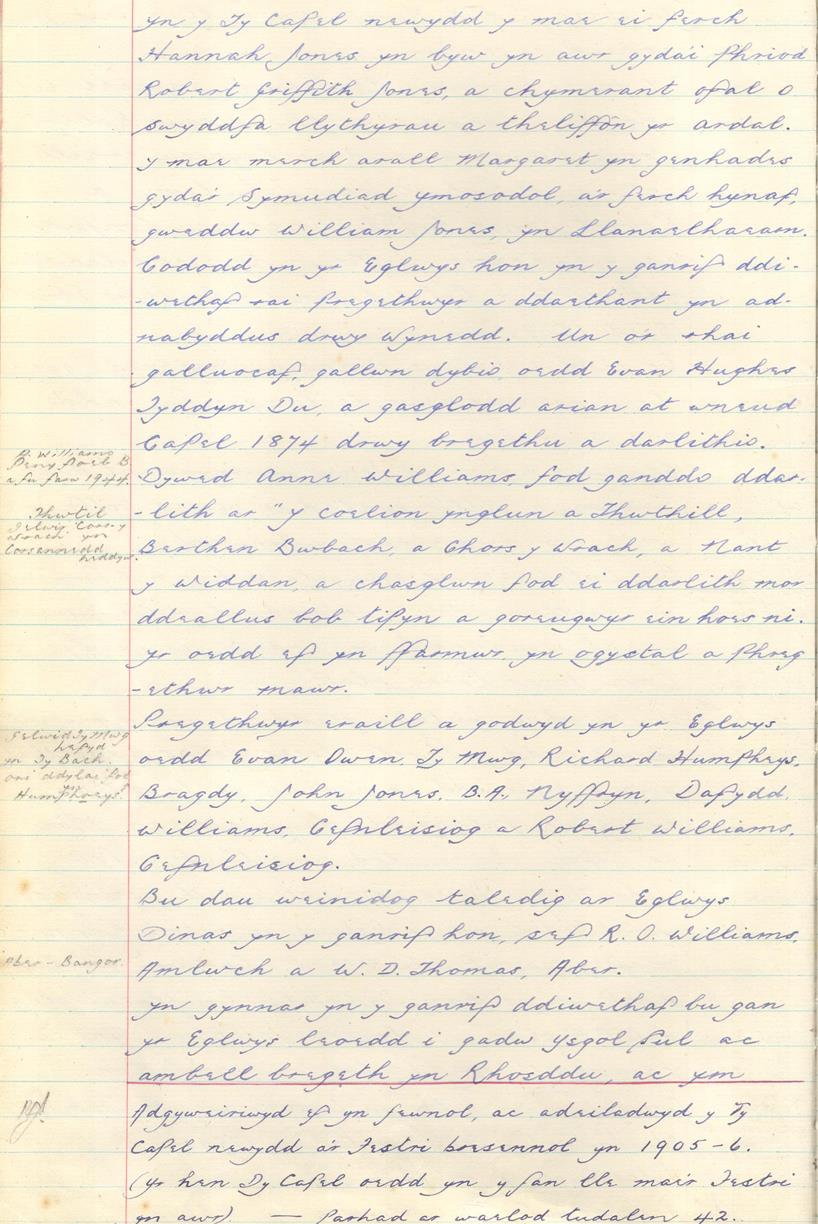 yn y Ty Capel newydd y mae ei ferch
Hannah Jones yn byw yn awr gyda'i Phriod
Robert Griffith Jones, a chymerant ofal o
swyddfa llythyrau a theliffôn yr ardal.
Y mae merch arall Margaret yn genhades
gyda'r Symudiad ymosodol, a'r ferch hynaf,
gweddw William Jones, yn Llanaelhaearn.
Cododd yn yr Eglwys hon yn y ganrif ddi-
-wethaf rai pregethwyr a ddaethant yn ad-
nabyddus drwy Wynedd. Un o'r rhai
galluocaf, gallwn dybio oedd Evan Hughes
Tyddyn Du, a gasglodd arian at wneud
Capel 1874 drwy bregethu a darlithio.
Dywed Anne Williams, fod ganddo ddar-
-lith ar "Y coelion ynglun a Thwthill,
Berthen Bwbach, a Chors y Wrach, a Nant
y Widdan, a chasglwn fod ei ddarlith mor
ddeallus bob tipyn a goreugwyr ein hoes ni.
Yr oedd ef yn ffarmwr yn ogystal a Phreg
-ethwr mawr.
Pregethwyr eraill a godwyd yn yr Eglwys
oedd Evan Owen, Ty Mwg, Richard Humphreys,
Bragdy, John Jones, B.A, Nyffryn, Dafydd
Williams, Cefnleisiog a Robert Williams,
Cefnleisiog.
Bu dau weinidog taledig ar Eglwys
Dinas yn y ganrif hon, sef R. O. Williams,
Amlwch a W. D. Thomas, Aber.
Yn gynnar yn y ganrif ddiwethaf bu gan
yr Eglwys leoedd i gadw Ysgol Sul ac
ambell bregeth yn Rhosddu, ac ym
Adgyweiriwyd ef yn fewnol, ac adeiladwyd y Ty
Capel newydd a'r Festri bresennol yn 1905-6.
(Yr hen Dy Capel oedd yn y fan lle mae'r Festri
yn awr). — Parhad ar waelod tudalen 42.
Williams
Twtil
Gelwir Cors-y
Wrach yn
heddyw.
Gelwid Ty Mwg
hefyd
yn Ty Bach.
Humphreys?
Aber - Bangor.